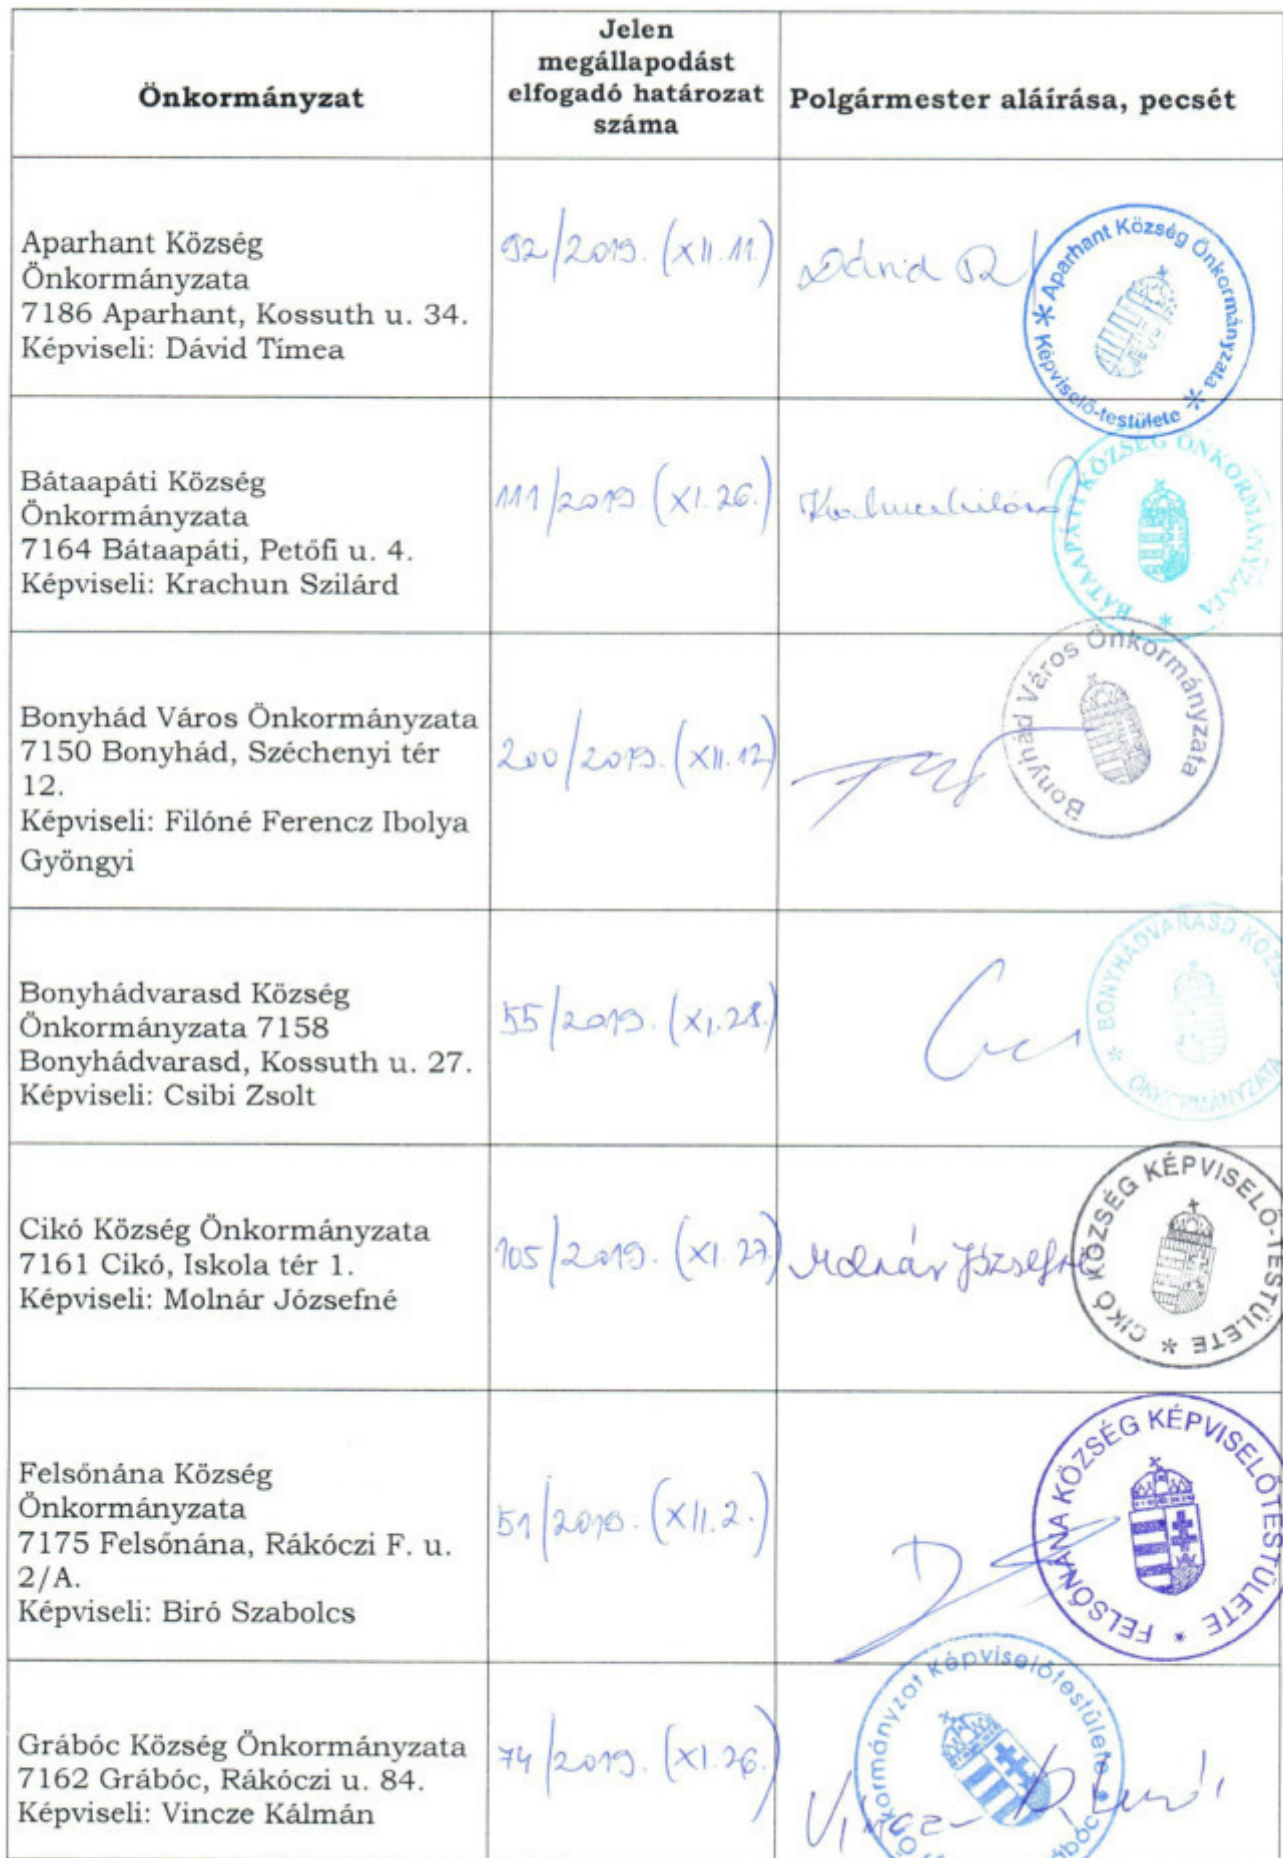 Önkormányzat
Jelen
megállapodást
elfogadó határozat
száma
Polgármester aláírása, pecsét
Aparhant Község
Önkormányzata
7186 Aparhant, Kossuth u. 34.
Képviseli: Dávid Tímea
92/2019. (XII.11.)
Dávid
* Aparhant Község Önkormányzata * Képviselő-testülete
Bátaapáti Község
Önkormányzata
7164 Bátaapáti, Petőfi u. 4.
Képviseli: Krachun Szilárd
111/2019. (XI.26.)
BÁTAAPÁTI KÖZSÉG ÖNKORMÁNYZATA *
Bonyhád Város Önkormányzata
7150 Bonyhád, Széchenyi tér
12.
Képviseli: Filóné Ferencz Ibolya
Gyöngyi
200/2019. (XII.12)
Bonyhád Város Önkormányzata
Bonyhádvarasd Község
Önkormányzata 7158
Bonyhádvarasd, Kossuth u. 27.
Képviseli: Csibi Zsolt
55/2019. (XI.28.)
* BONYHÁDVARASD KÖZSÉ
ÖNKORMÁNYZATA
Cikó Község Önkormányzata
7161 Cikó, Iskola tér 1.
Képviseli: Molnár Józsefné
105/2019. (XI.27)
Molnár Józsefné
CIKÓ KÖZSÉG KÉPVISELŐ-TESTÜLETE *
Felsőnána Község
Önkormányzata
7175 Felsőnána, Rákóczi F. u.
2/A.
Képviseli: Biró Szabolcs
51/2019. (XII.2.)
FELSŐNÁNA KÖZSÉG KÉPVISELŐTESTÜLETE *
Grábóc Község Önkormányzata
7162 Grábóc, Rákóczi u. 84.
Képviseli: Vincze Kálmán
74/2019. (XI.26.)
Vincze Kálmán
Önkormányzat Képviselőtestülete *